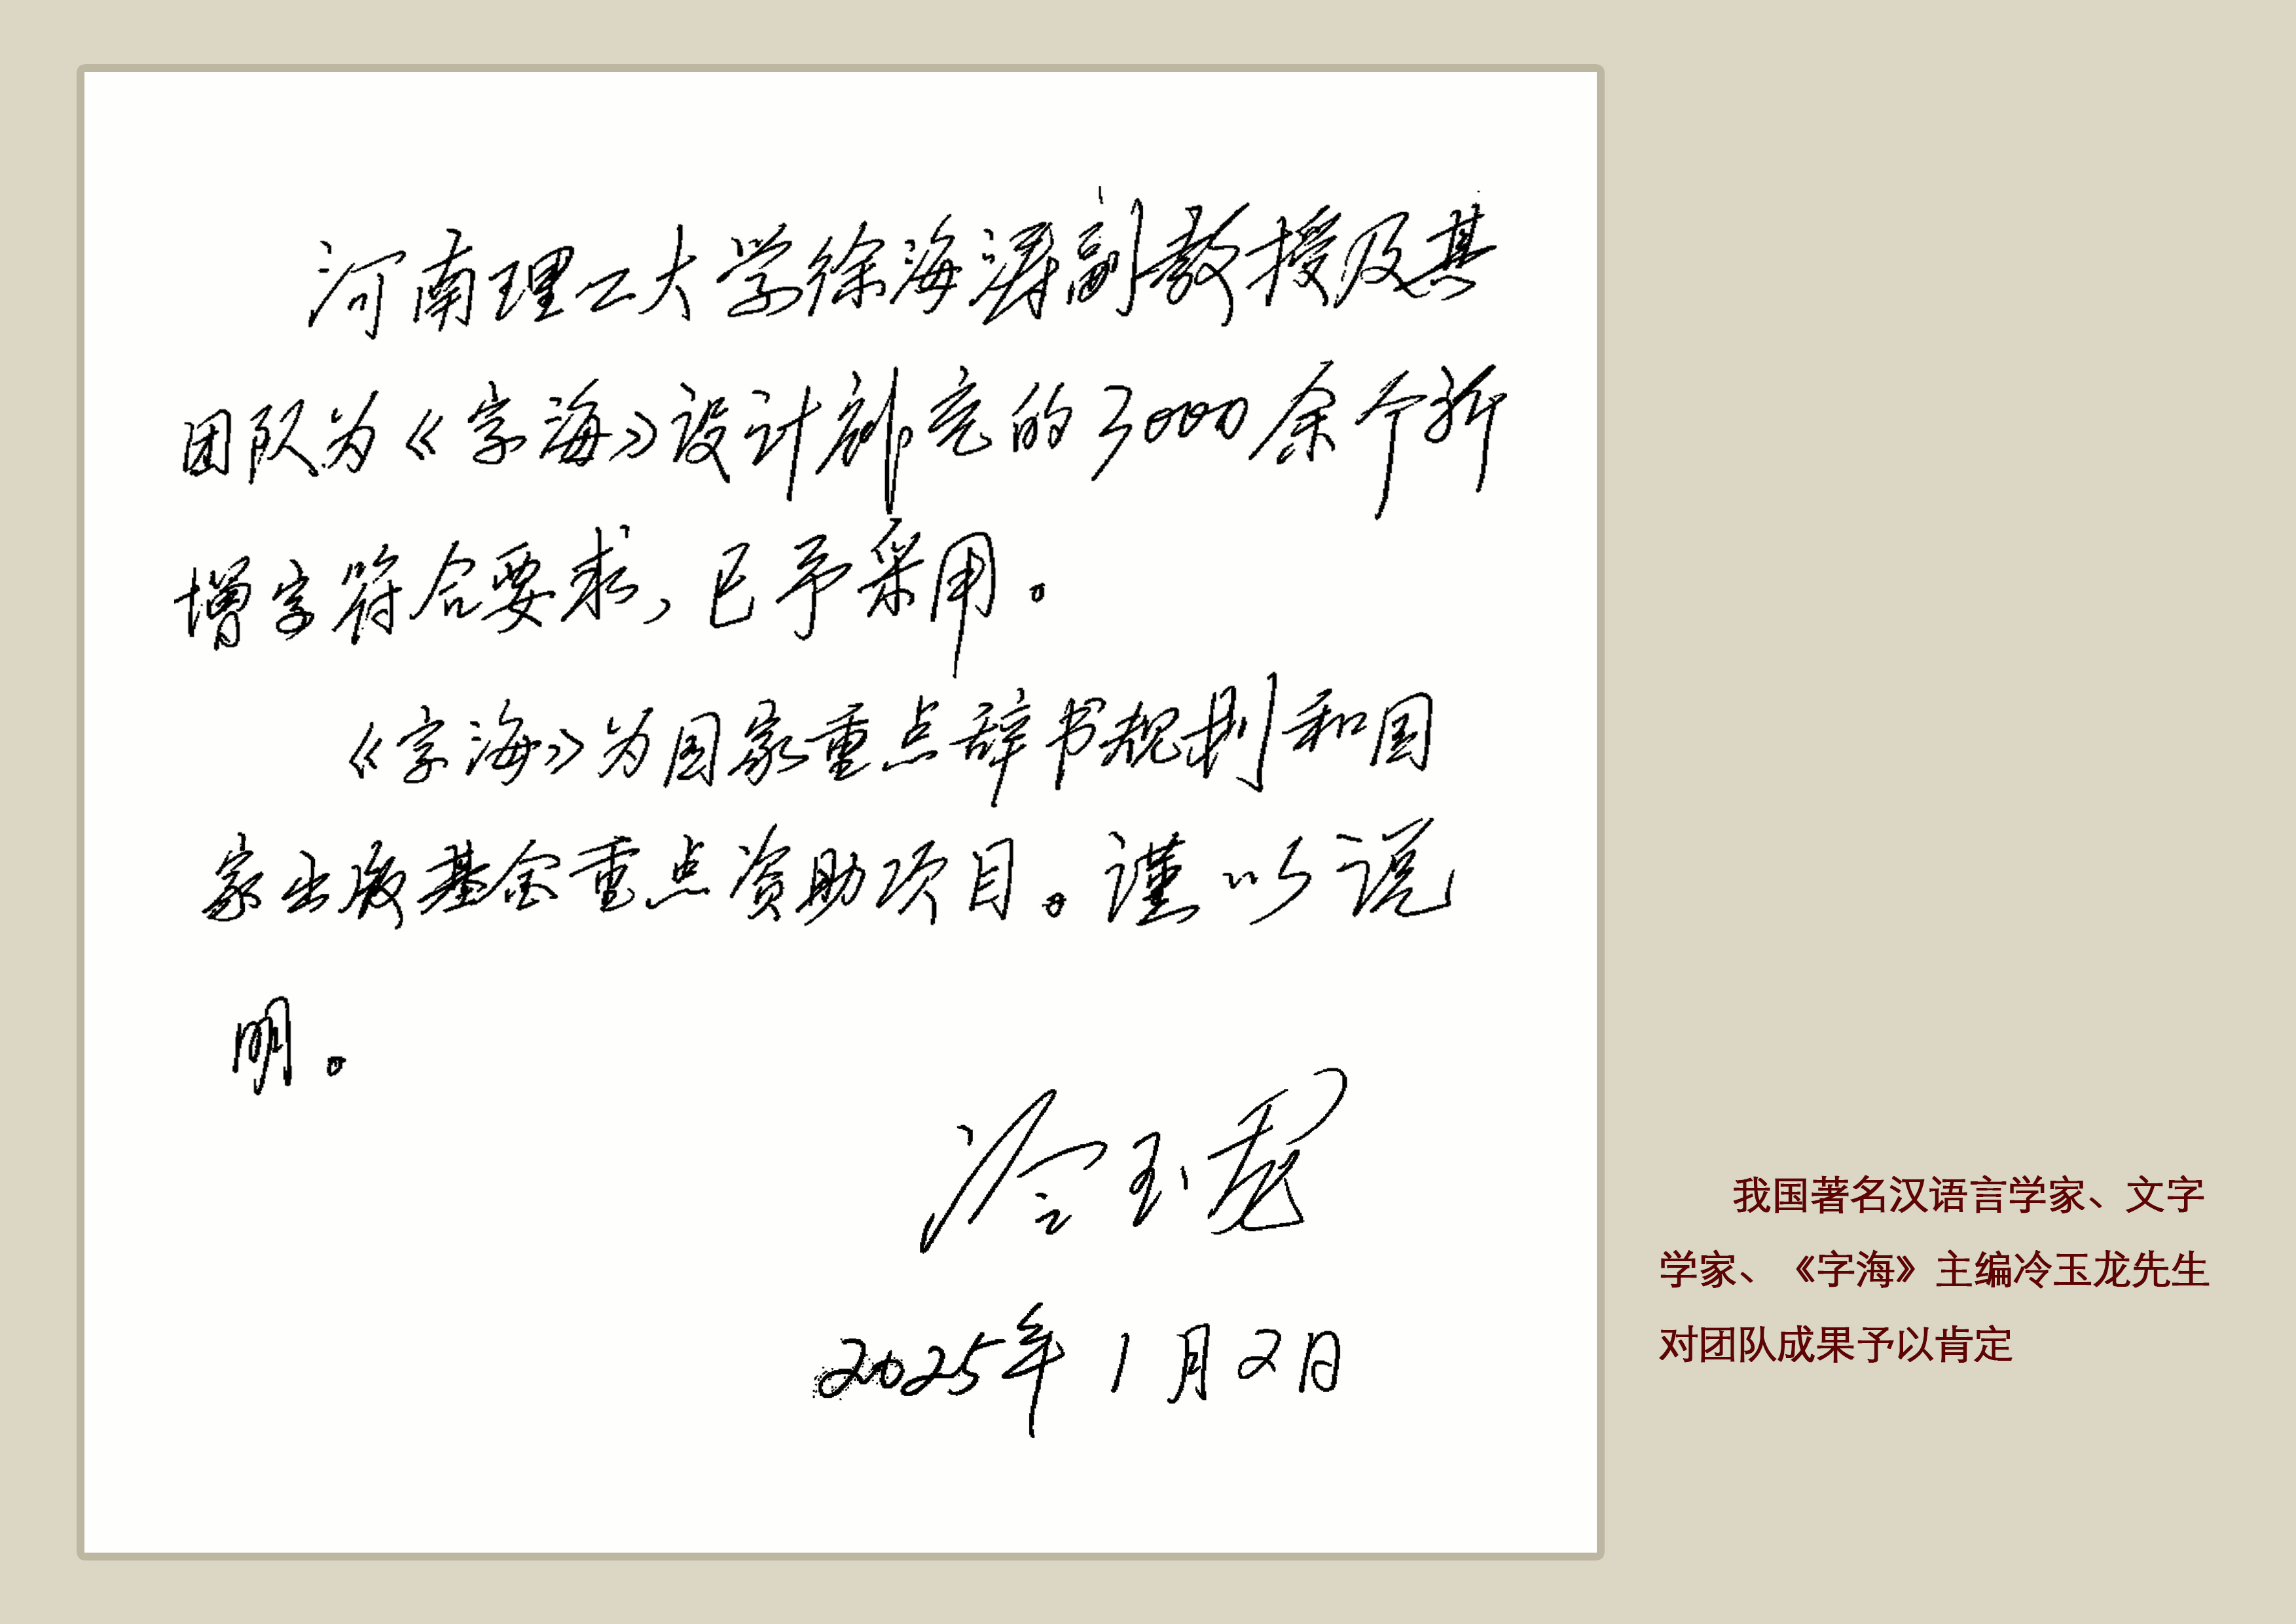 河南理工大学徐海涛副教授及其
团队为《字海》设计补充的3000余个新
增字符合要求，已予采用。
《字海》为国家重点辞书规划和国
家出版基金重点资助项目。谨以说
明。
冷玉龙
2025年1月2日
我国著名汉语言学家、文字
学家、《字海》主编冷玉龙先生
对团队成果予以肯定